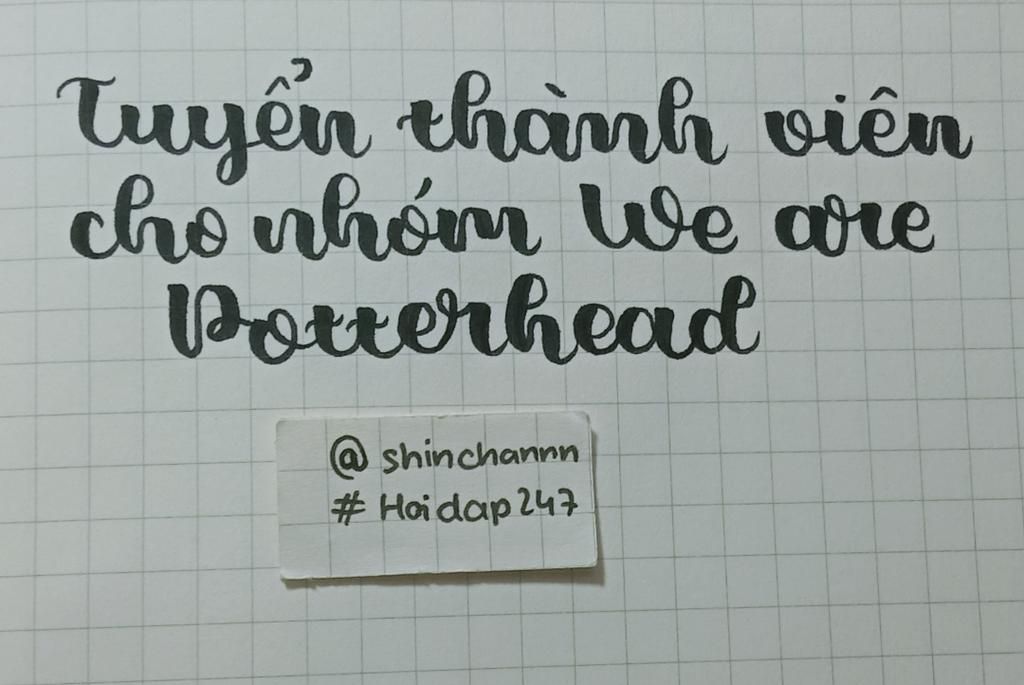 Tuyển thành viên
cho nhóm We are
Potterhead
@ shinchannn
# Hoidap247